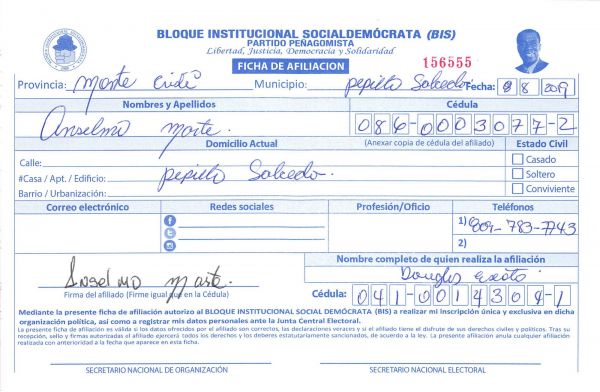 BLOQUE INSTITUCIONAL SOCIALDEMÓCRATA (BIS)
PARTIDO PEÑAGOMISTA
Libertad, Justicia, Democracia y Solidaridad
FICHA DE AFILIACION
156555
Provincia: Monte Cristi Municipio: Pepillo Salcedo Fecha: 8 8 2019
Nombres y Apellidos Cédula
Anselmo Marte. 086-0003077-2
Domicilio Actual (Anexar copia de cédula del afiliado) Estado Civil
Calle: Casado
#Casa / Apt. / Edificio: Pepillo Salcedo. Soltero
Barrio / Urbanización: Conviviente
Correo electrónico Redes sociales Profesión/Oficio Teléfonos
1) 809-783-7743
2)
Nombre completo de quien realiza la afiliación
Anselmo Marte Douglas
Firma del afiliado (Firme igual que en la Cédula) Cédula: 041-0014304-1
Mediante la presente ficha de afiliación autorizo al BLOQUE INSTITUCIONAL SOCIAL DEMÓCRATA (BIS) a realizar mi inscripción única y exclusiva en dicha
organización política, así como a registrar mis datos personales ante la Junta Central Electoral.
La presente ficha de afiliación es válida si los datos ofrecidos por el afiliado son correctos, las declaraciones veraces y si el afiliado tiene el disfrute de sus derechos civiles y políticos. Tras su
recepción, sello y firmas autorizadas el afiliado ejercerá todos los derechos y los deberes estatutariamente sancionados, de acuerdo a la ley. La presente afiliación anula cualquier afiliación
realizada con anterioridad a la fecha que aparece en esta ficha.
SECRETARIO NACIONAL DE ORGANIZACIÓN SECRETARIO NACIONAL ELECTORAL